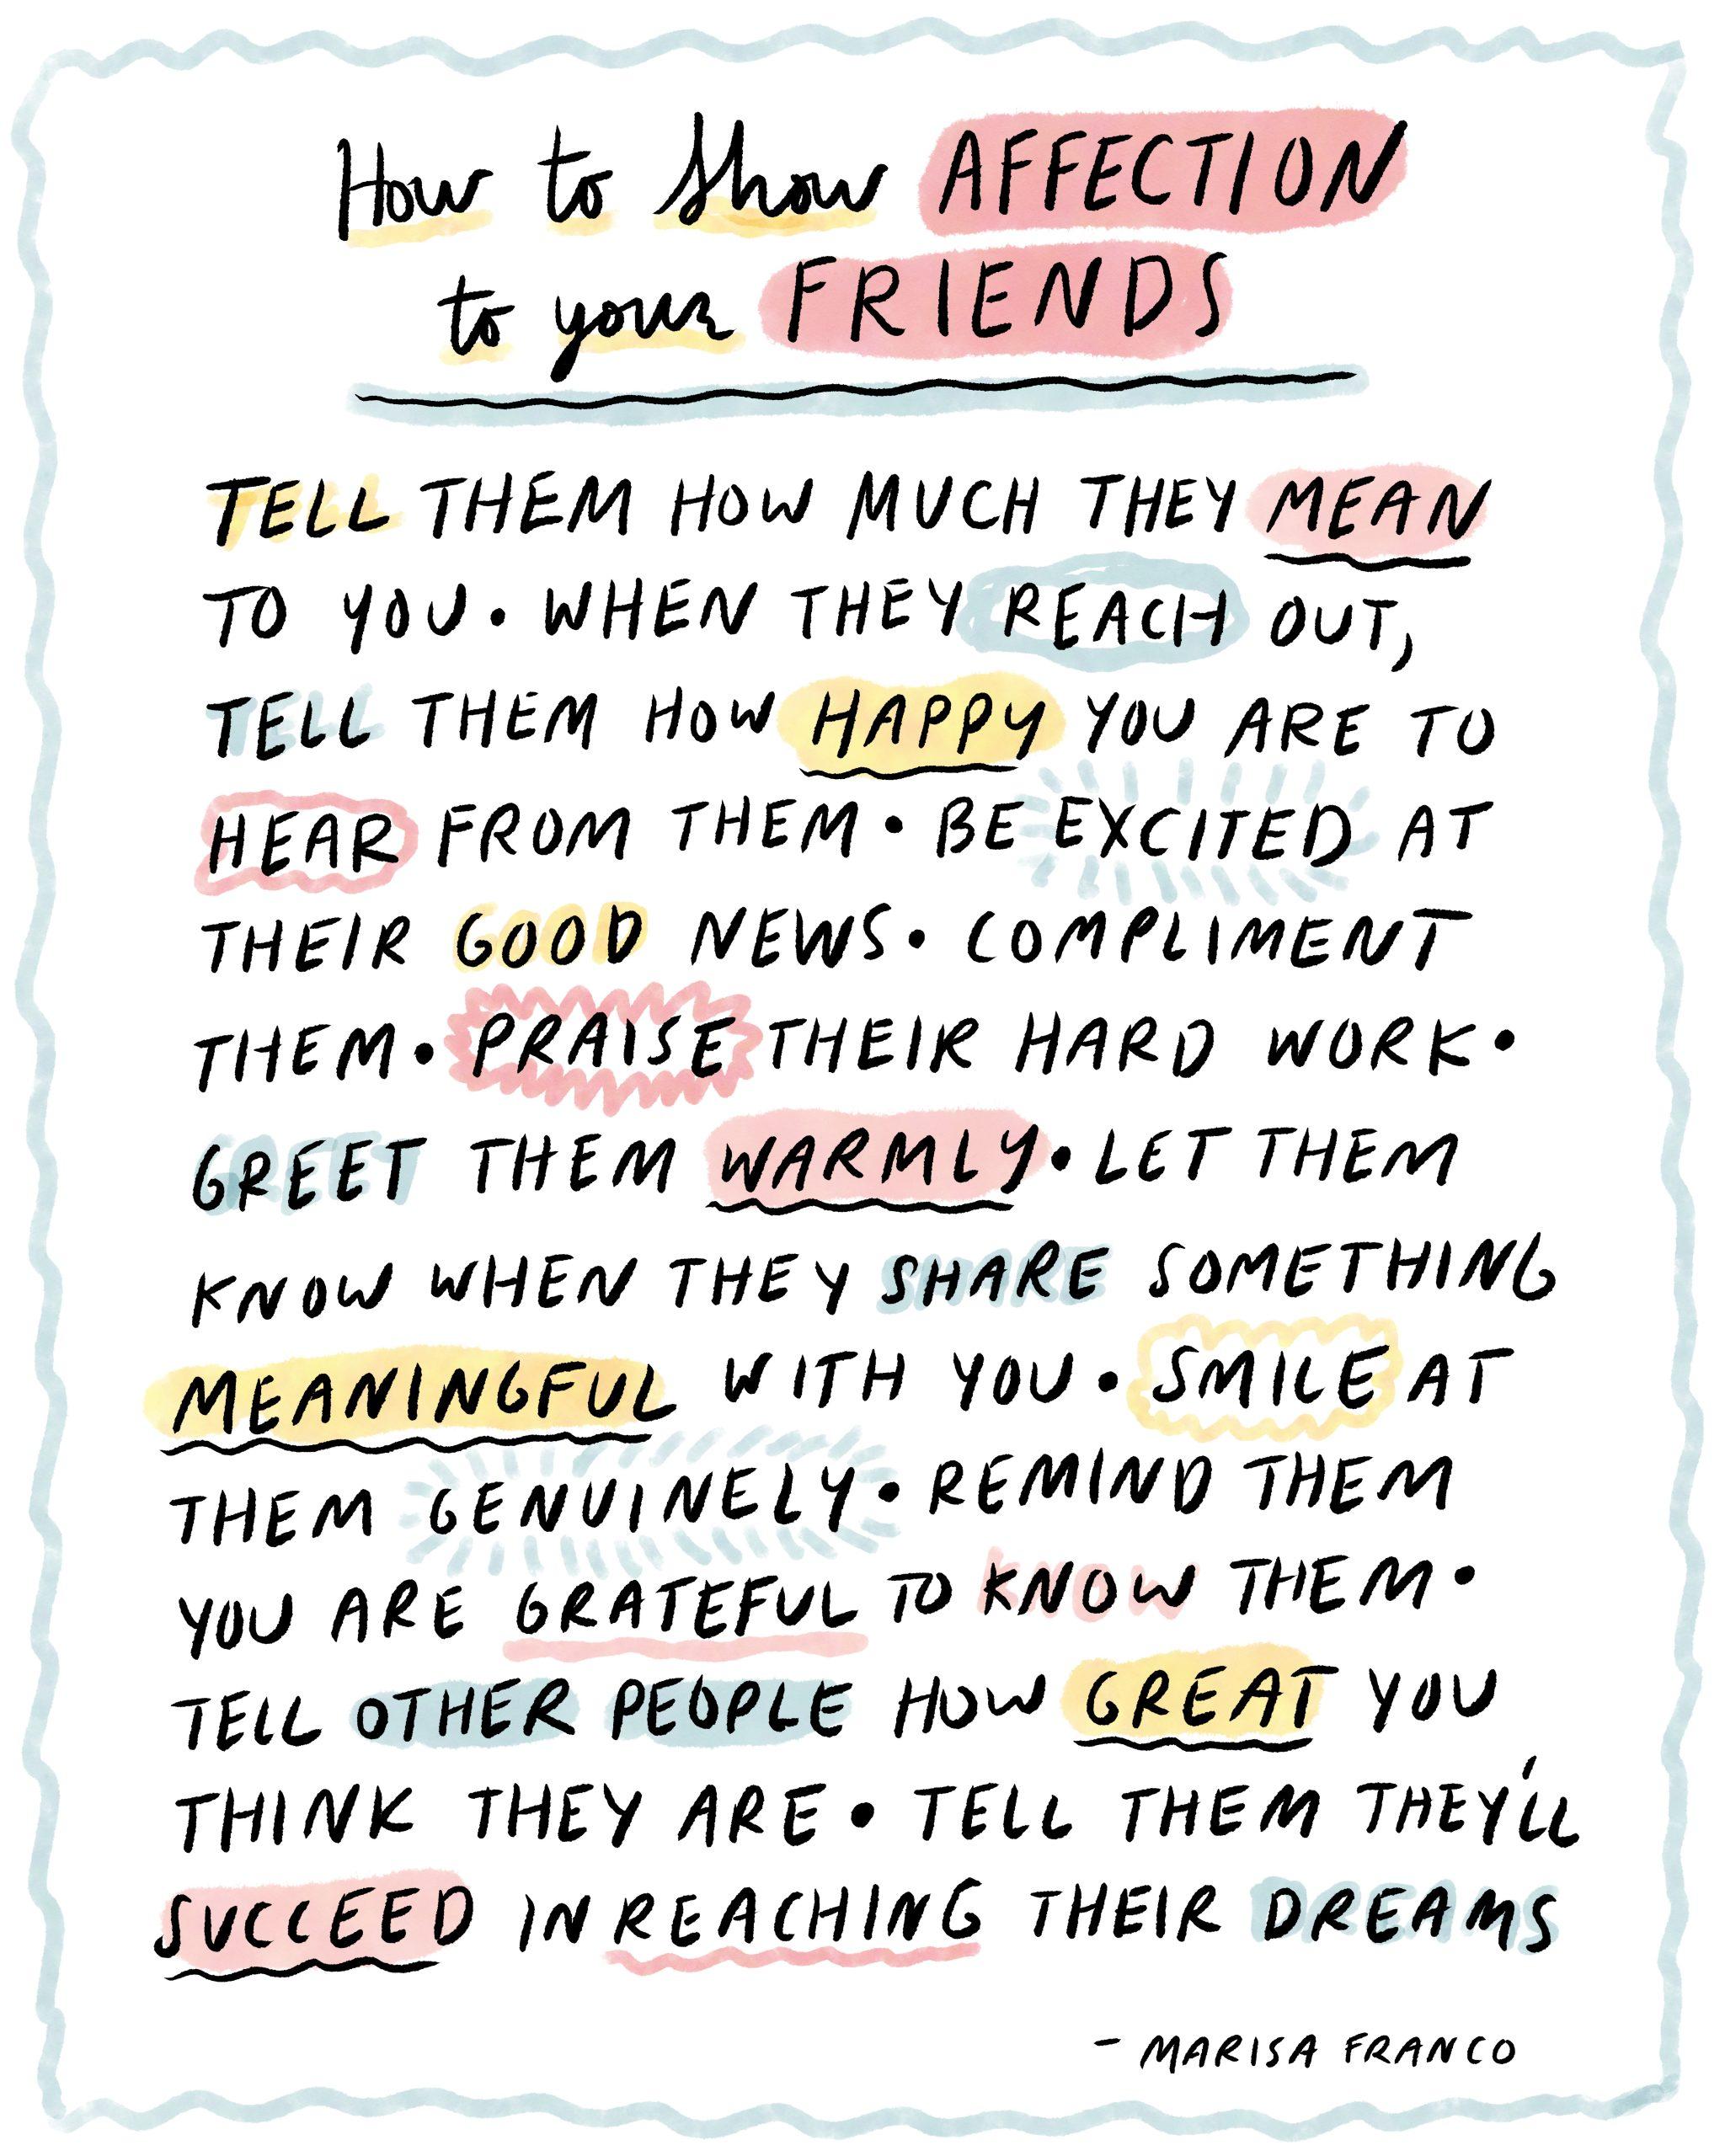 How to Show AFFECTION
to your FRIENDS
TELL THEM HOW MUCH THEY MEAN
TO YOU • WHEN THEY REACH OUT,
TELL THEM HOW HAPPY YOU ARE TO
HEAR FROM THEM • BE EXCITED AT
THEIR GOOD NEWS • COMPLIMENT
THEM • PRAISE THEIR HARD WORK •
GREET THEM WARMLY • LET THEM
KNOW WHEN THEY SHARE SOMETHING
MEANINGFUL WITH YOU • SMILE AT
THEM GENUINELY • REMIND THEM
YOU ARE GRATEFUL TO KNOW THEM •
TELL OTHER PEOPLE HOW GREAT YOU
THINK THEY ARE • TELL THEM THEY'LL
SUCCEED IN REACHING THEIR DREAMS
- MARISA FRANCO